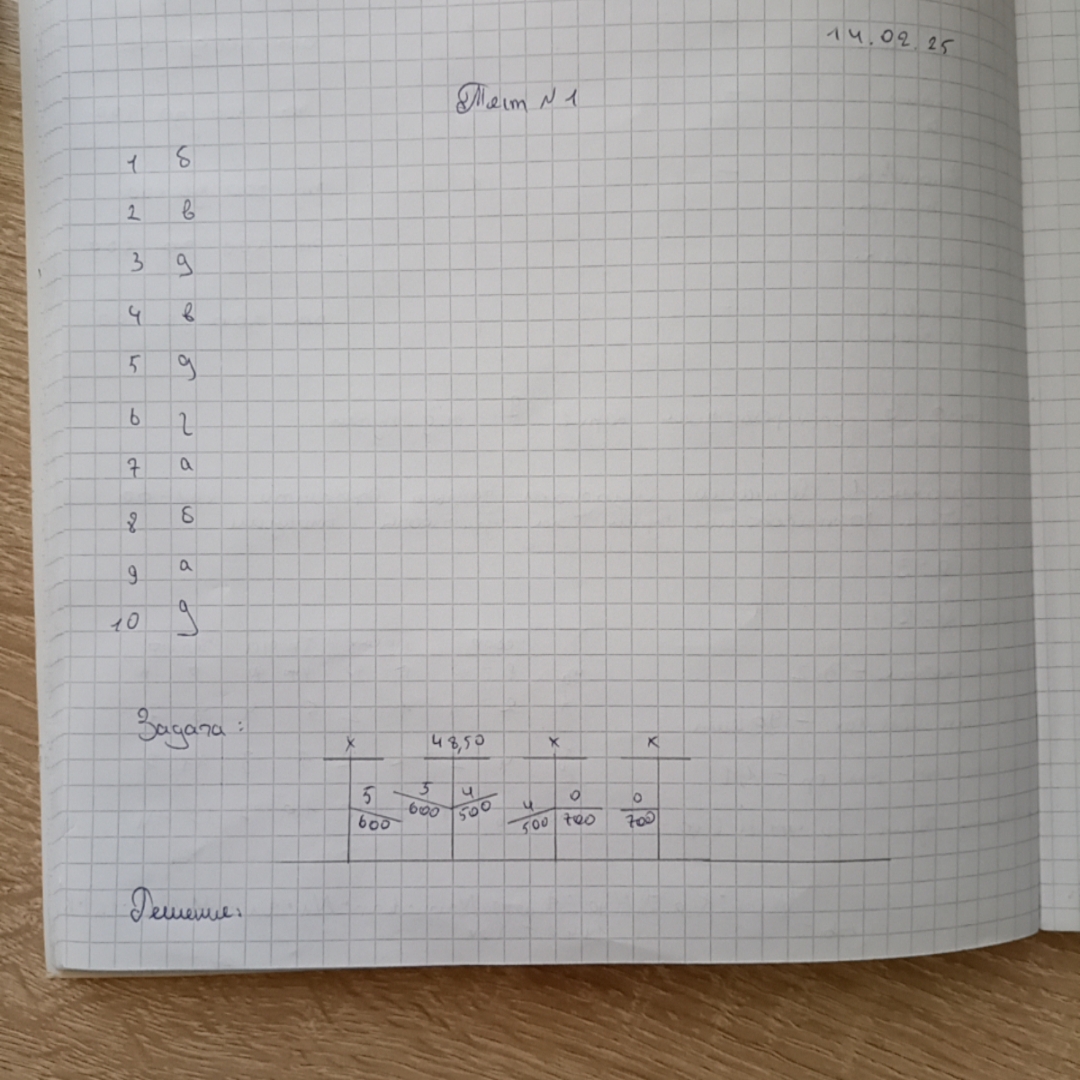 14.02.25
Тест №1
1 б
2 в
3 д
4 в
5 д
6 г
7 а
8 б
9 а
10 д
Задача:
x 48,50 x x
5 5 4 4 0 0
600 600 500 500 700 700
Решение: